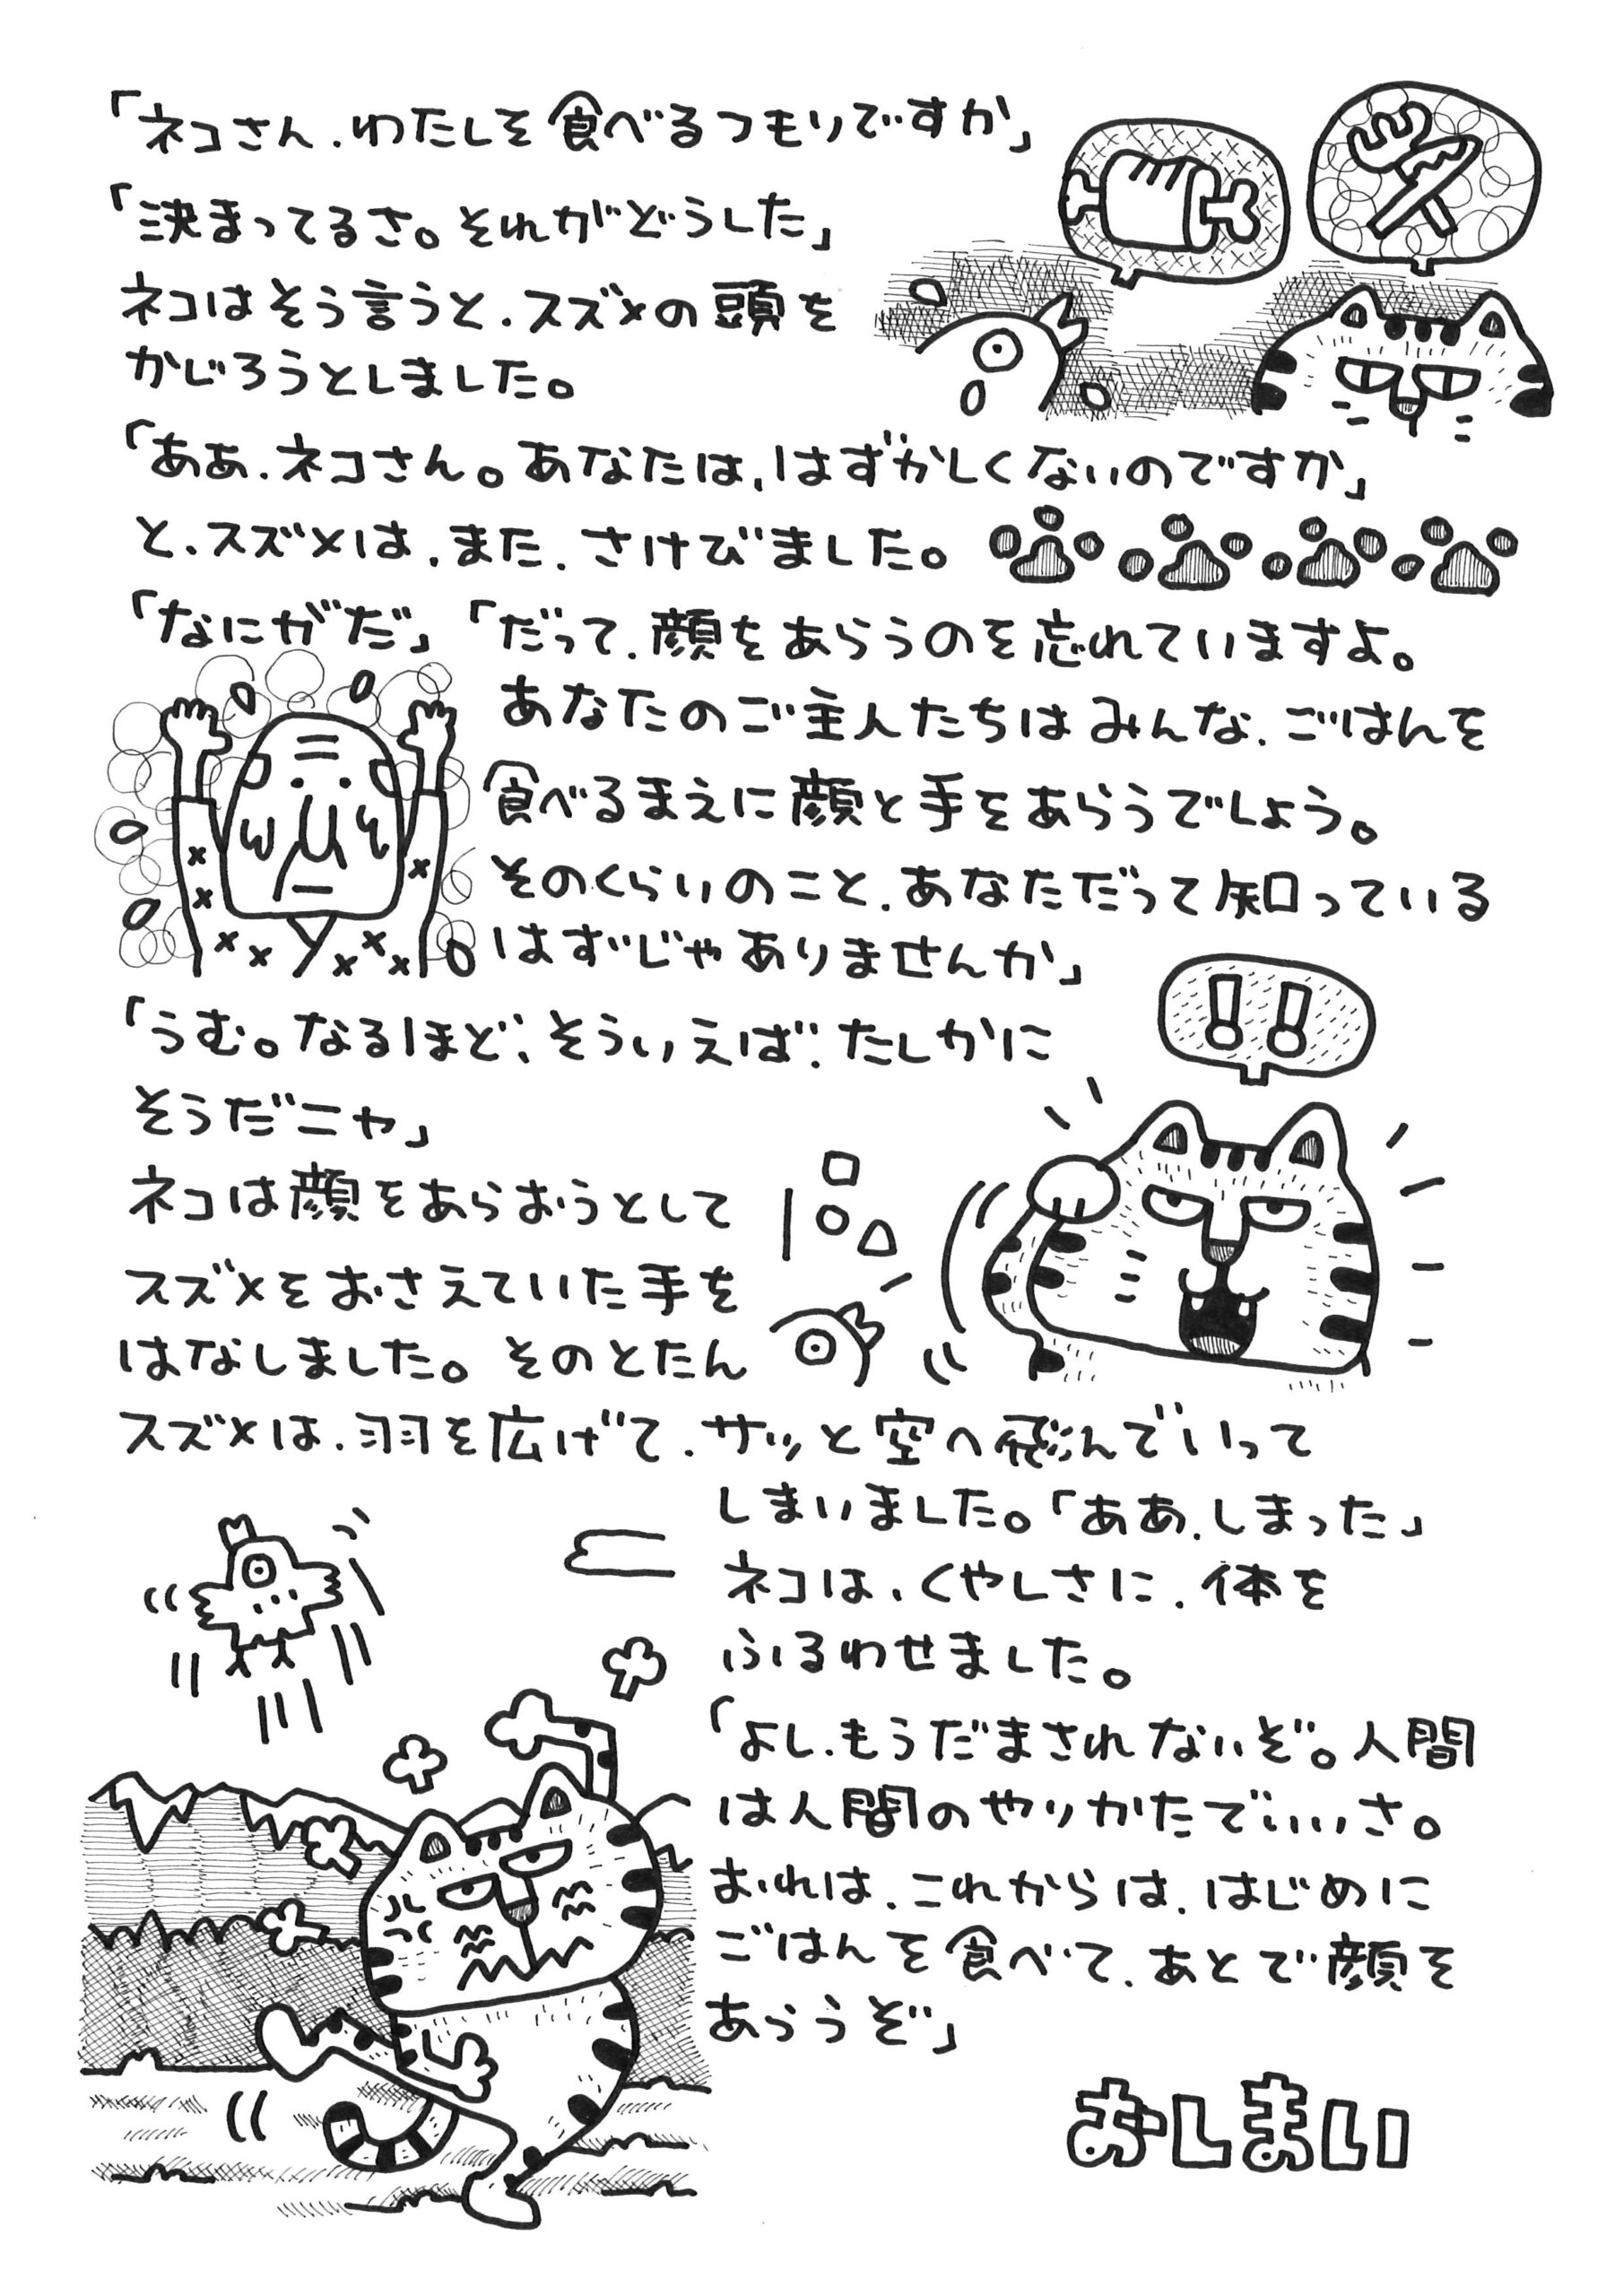 「ネコさん、わたしを食べるつもりですか」
「決まってるさ。それがどうした」
ネコはそう言うと、スズメの頭を
かじろうとしました。
「ああ、ネコさん。あなたは、はずかしくないのですか」
と、スズメは、また、さけびました。
「なにがだ」「だって、顔をあらうのを忘れていますよ。
あなたのご主人たちはみんな、ごはんを
食べるまえに顔と手をあらうでしょう。
そのくらいのこと、あなただって知っている
はずじゃありませんか」
!!
「うむ。なるほど、そういえば、たしかに
そうだニャ」
ネコは顔をあらおうとして
スズメをおさえていた手を
はなしました。そのとたん
スズメは、羽を広げて、サッと空へ飛んでいって
しまいました。「ああ、しまった」
ネコは、くやしさに、体を
ふるわせました。
「よし、もうだまされないぞ。人間
は人間のやりかたでいいさ。
おれは、これからは、はじめに
ごはんを食べて、あとで顔を
あらうぞ」
おしまい